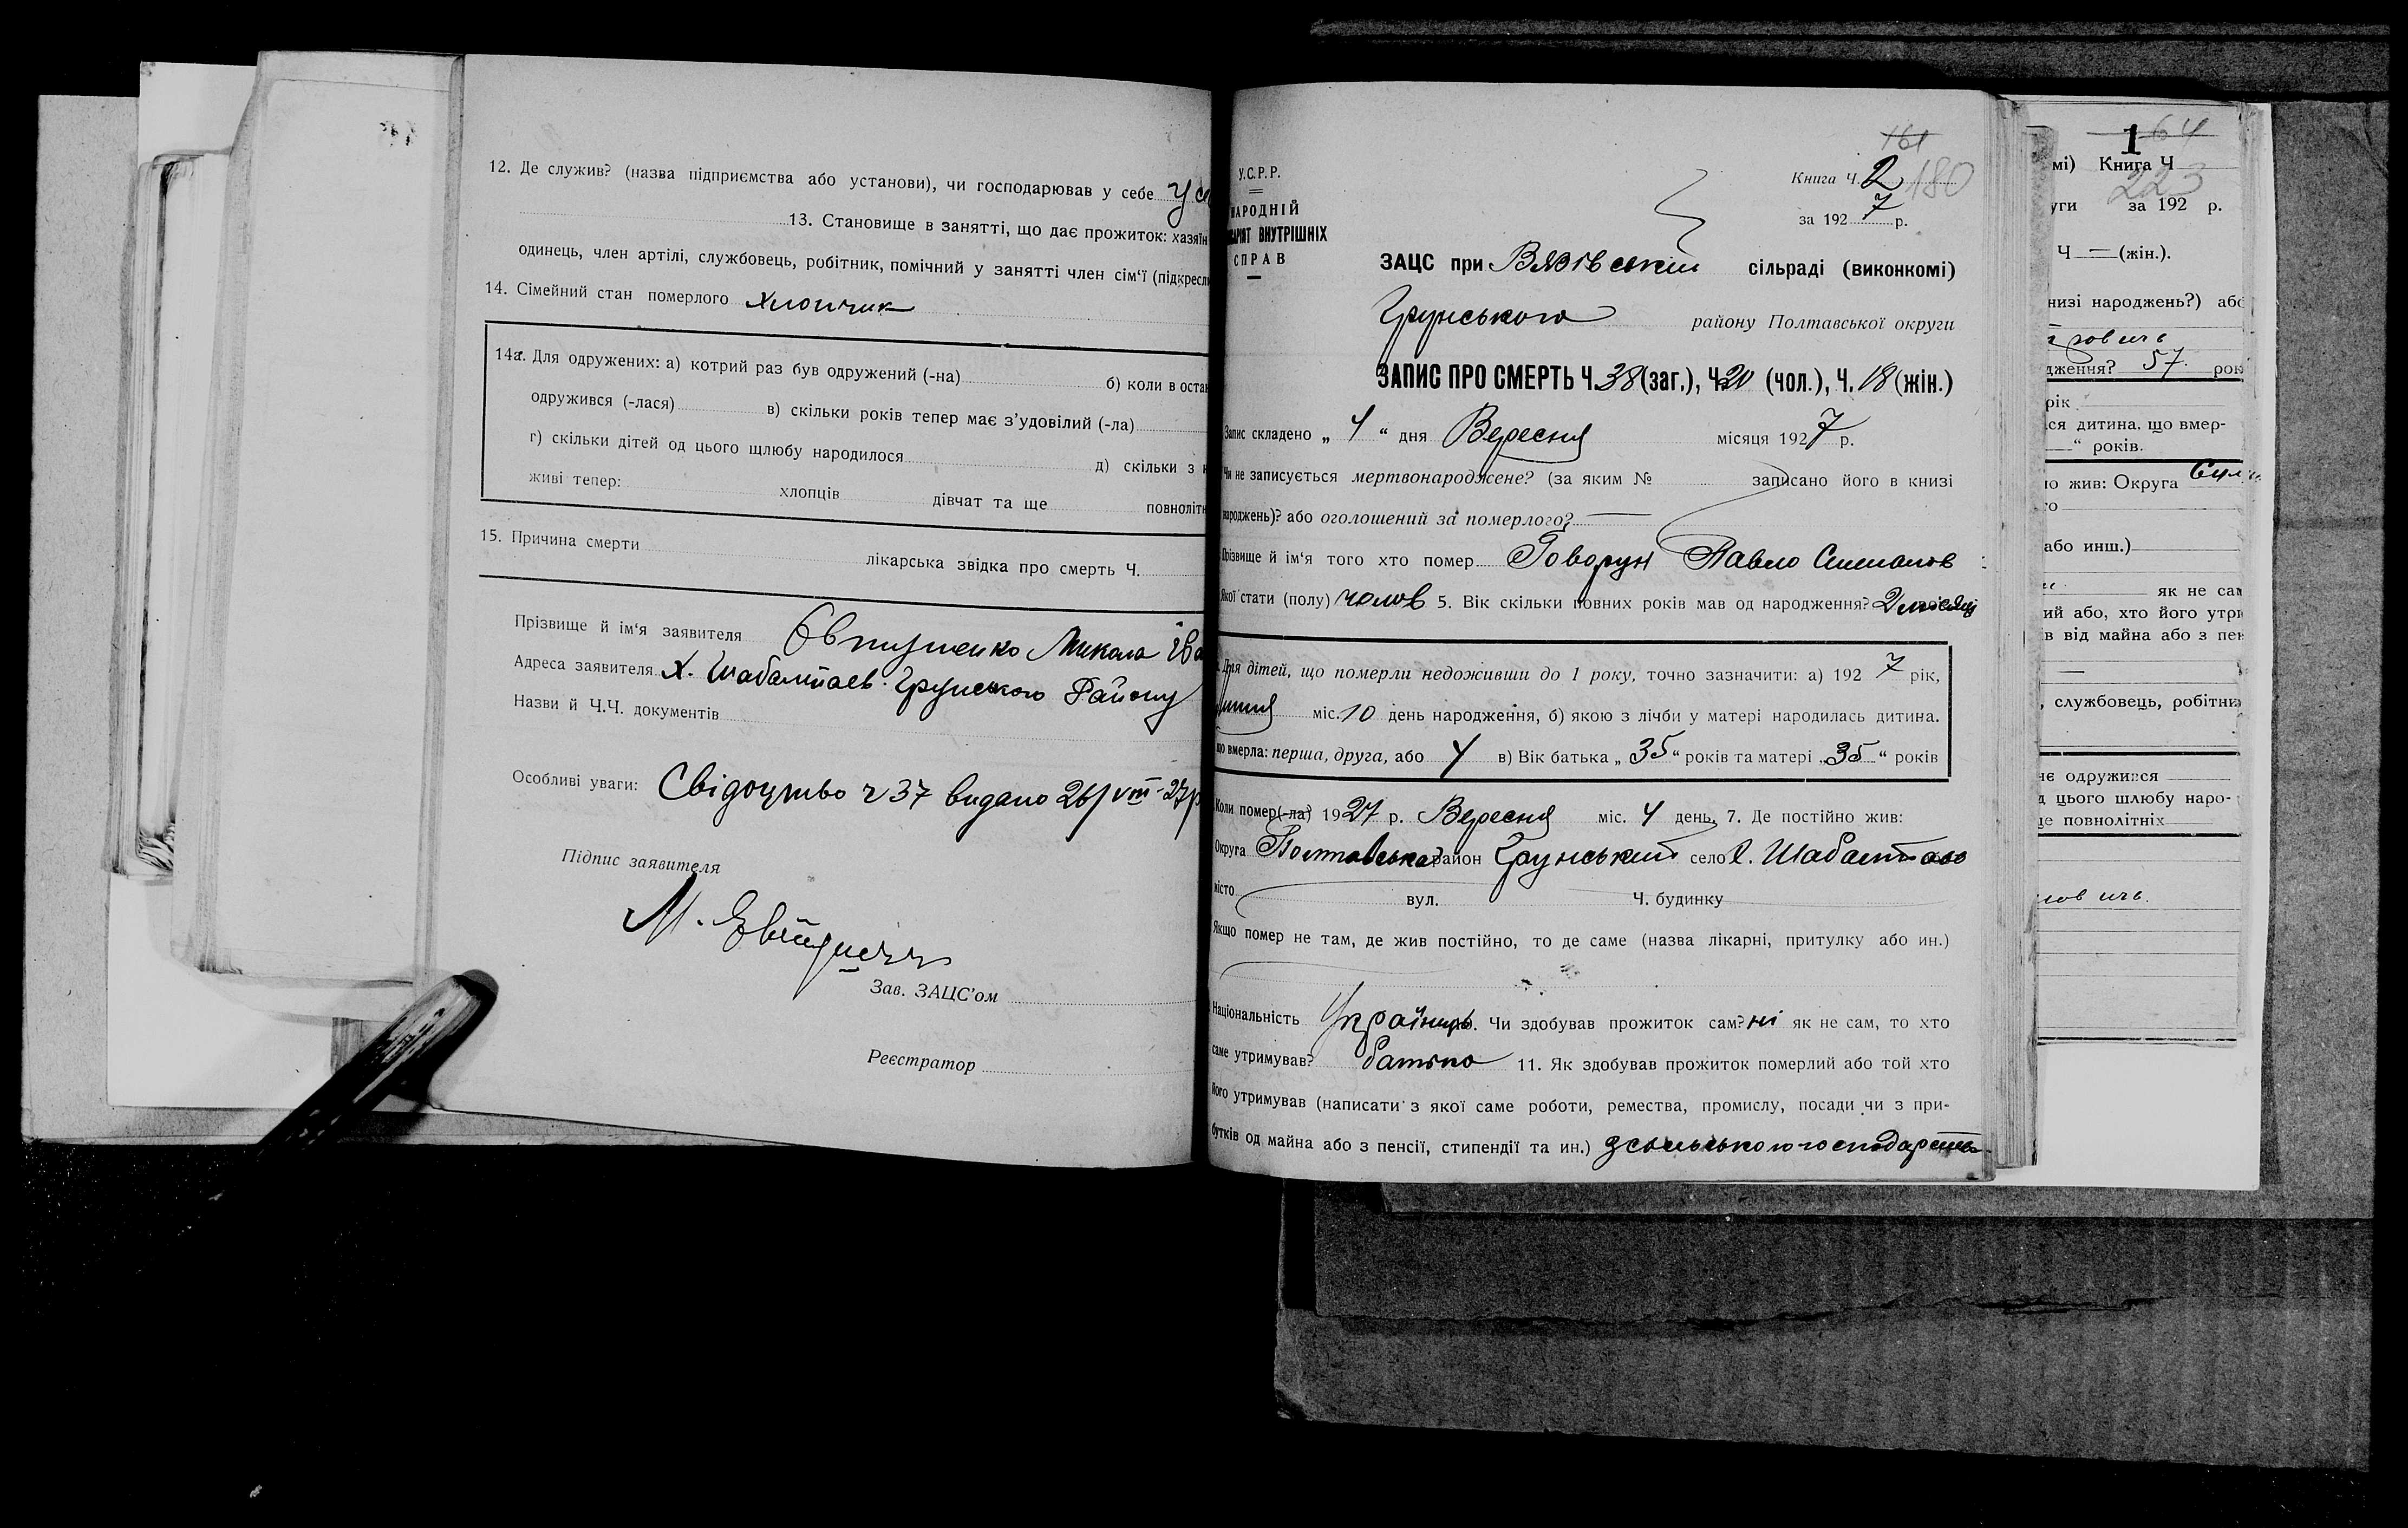 12. Де служив? (назва підприємства або установи), чи господарював у себе у се
13. Становище в занятті, що дає прожиток: хазяїн
одинець, член артілі, службовець, робітник, помічний у занятті член сім‘ї (підкресл
14. Сімейний стан померлого хлопчик
14а. Для одружених: а) котрий раз був одружений (-на) б) коли в оста
одружився (-лася) в) скільки років тепер має з’удовілий (-ла)
г) скільки дітей од цього щлюбу народилося д) скільки з
живі тепер: хлопців дівчат та ще повноліт
15. Причина смерти лікарська звідка про смерть Ч.
Прізвище й ім‘я заявителя Євтушенко Микола Іва
Адреса заявителя Х. Шабалтаев. Грунського Району
Назви й Ч.Ч. документів
Особливі уваги: Свідоцтво ч 37 видано 26/VIII-27р
Підпис заявителя
М. Євтушен
Зав. ЗАЦС’ом
Реєстратор
161
Книга Ч. 2 180
за 1927 р.
У.С.Р.Р.
НАРОДНІЙ
ВНУТРІШНІХ
СПРАВ
ЗАЦС при Вязівській сільраді (виконкомі)
Грунського району Полтавської округи
ЗАПИС ПРО СМЕРТЬ Ч. 38 (заг.), Ч. 20 (чол.), Ч. 18 (жін.)
Запис складено „ 4 “ дня Вересня місяця 1927 р.
Чи не записується мертвонароджене? (за яким № записано його в книзі
народжень)? або оголошений за померлого? —
Прізвище й ім‘я того хто помер Говорун Павло Степанов
Якої стати (полу) чолов 5. Вік скільки повних років мав од народження? 2 місяці
Для дітей, що померли недоживши до 1 року, точно зазначити: а) 1927 рік,
міс. 10 день народження, б) якою з лічби у матері народилась дитина.
що вмерла: перша, друга, або 4 в) Вік батька „ 35 “ років та матері „ 35 “ років
Коли помер(-ла) 1927 р. Вересня міс. 4 день. 7. Де постійно жив:
Округа Полтавська район Грунський село Х. Шабалтаєво
місто вул. Ч. будинку
Якщо помер не там, де жив постійно, то де саме (назва лікарні, притулку або ин.)
Національність Українець. Чи здобував прожиток сам? ні як не сам, то хто
саме утримував? батько 11. Як здобував прожиток померлий або той хто
його утримував (написати з якої саме роботи, ремества, промислу, посади чи з при-
бутків од майна або з пенсії, стипендії та ин.) з сільського господарства
1 64
мі) Книга Ч
223
уги за 192 р.
Ч — (жін.).
низі народжень?) або
ження? 57 рок
рік
ся дитина, що вмер-
“ років.
о жив: Округа
го
або инш.)
як не сам
ий або, хто його утри
в від майна або з пен
, службовець, робітни
не одружився
д цього шлюбу наро-
ще повнолітніх